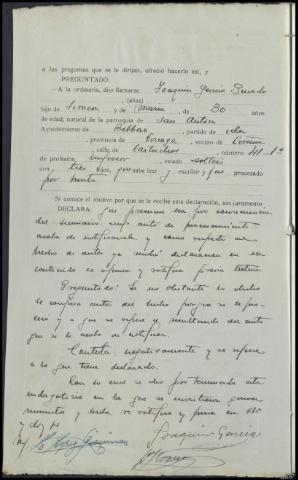 a las preguntas que se le dirijan, ofreció hacerlo así, y
PREGUNTADO:
—A la ordinaria, dijo llamarse Joaquin Garcia
(alias)
hijo de Simeon y de Maria, de 30 años
de edad; natural de la parroquia de San Anton
Ayuntamiento de Bilbao, partido de
, provincia de Vizcaya, vecino de Coruña
, calle de , número 41-1º
de profesión impresor, estado soltero
con tres hijos, que sabe leer y escribir y que procesado
por hurto
Si conoce el motivo por que se le recibe esta declaración, sin juramento
DECLARA: que presume sea por consecuencia
del sumario cuyo auto de procesamiento
acaba de notificarsele y como respecto al
hecho de autos ya declaracion en su
contenido se afirma y ratifica previa lectura
Preguntado: Si no obstante lo dicho
se confiesa autor del hecho porque se le
y a que se refiere el resultando del auto
que se le acaba de notificar
Contesta: negativamente y se refiere
a lo que tiene declarado.
Con lo cual se dió por terminada esta
indagatoria en la que
leida, se ratifica y firma con SSª
y doy fe
Joaquin Garcia